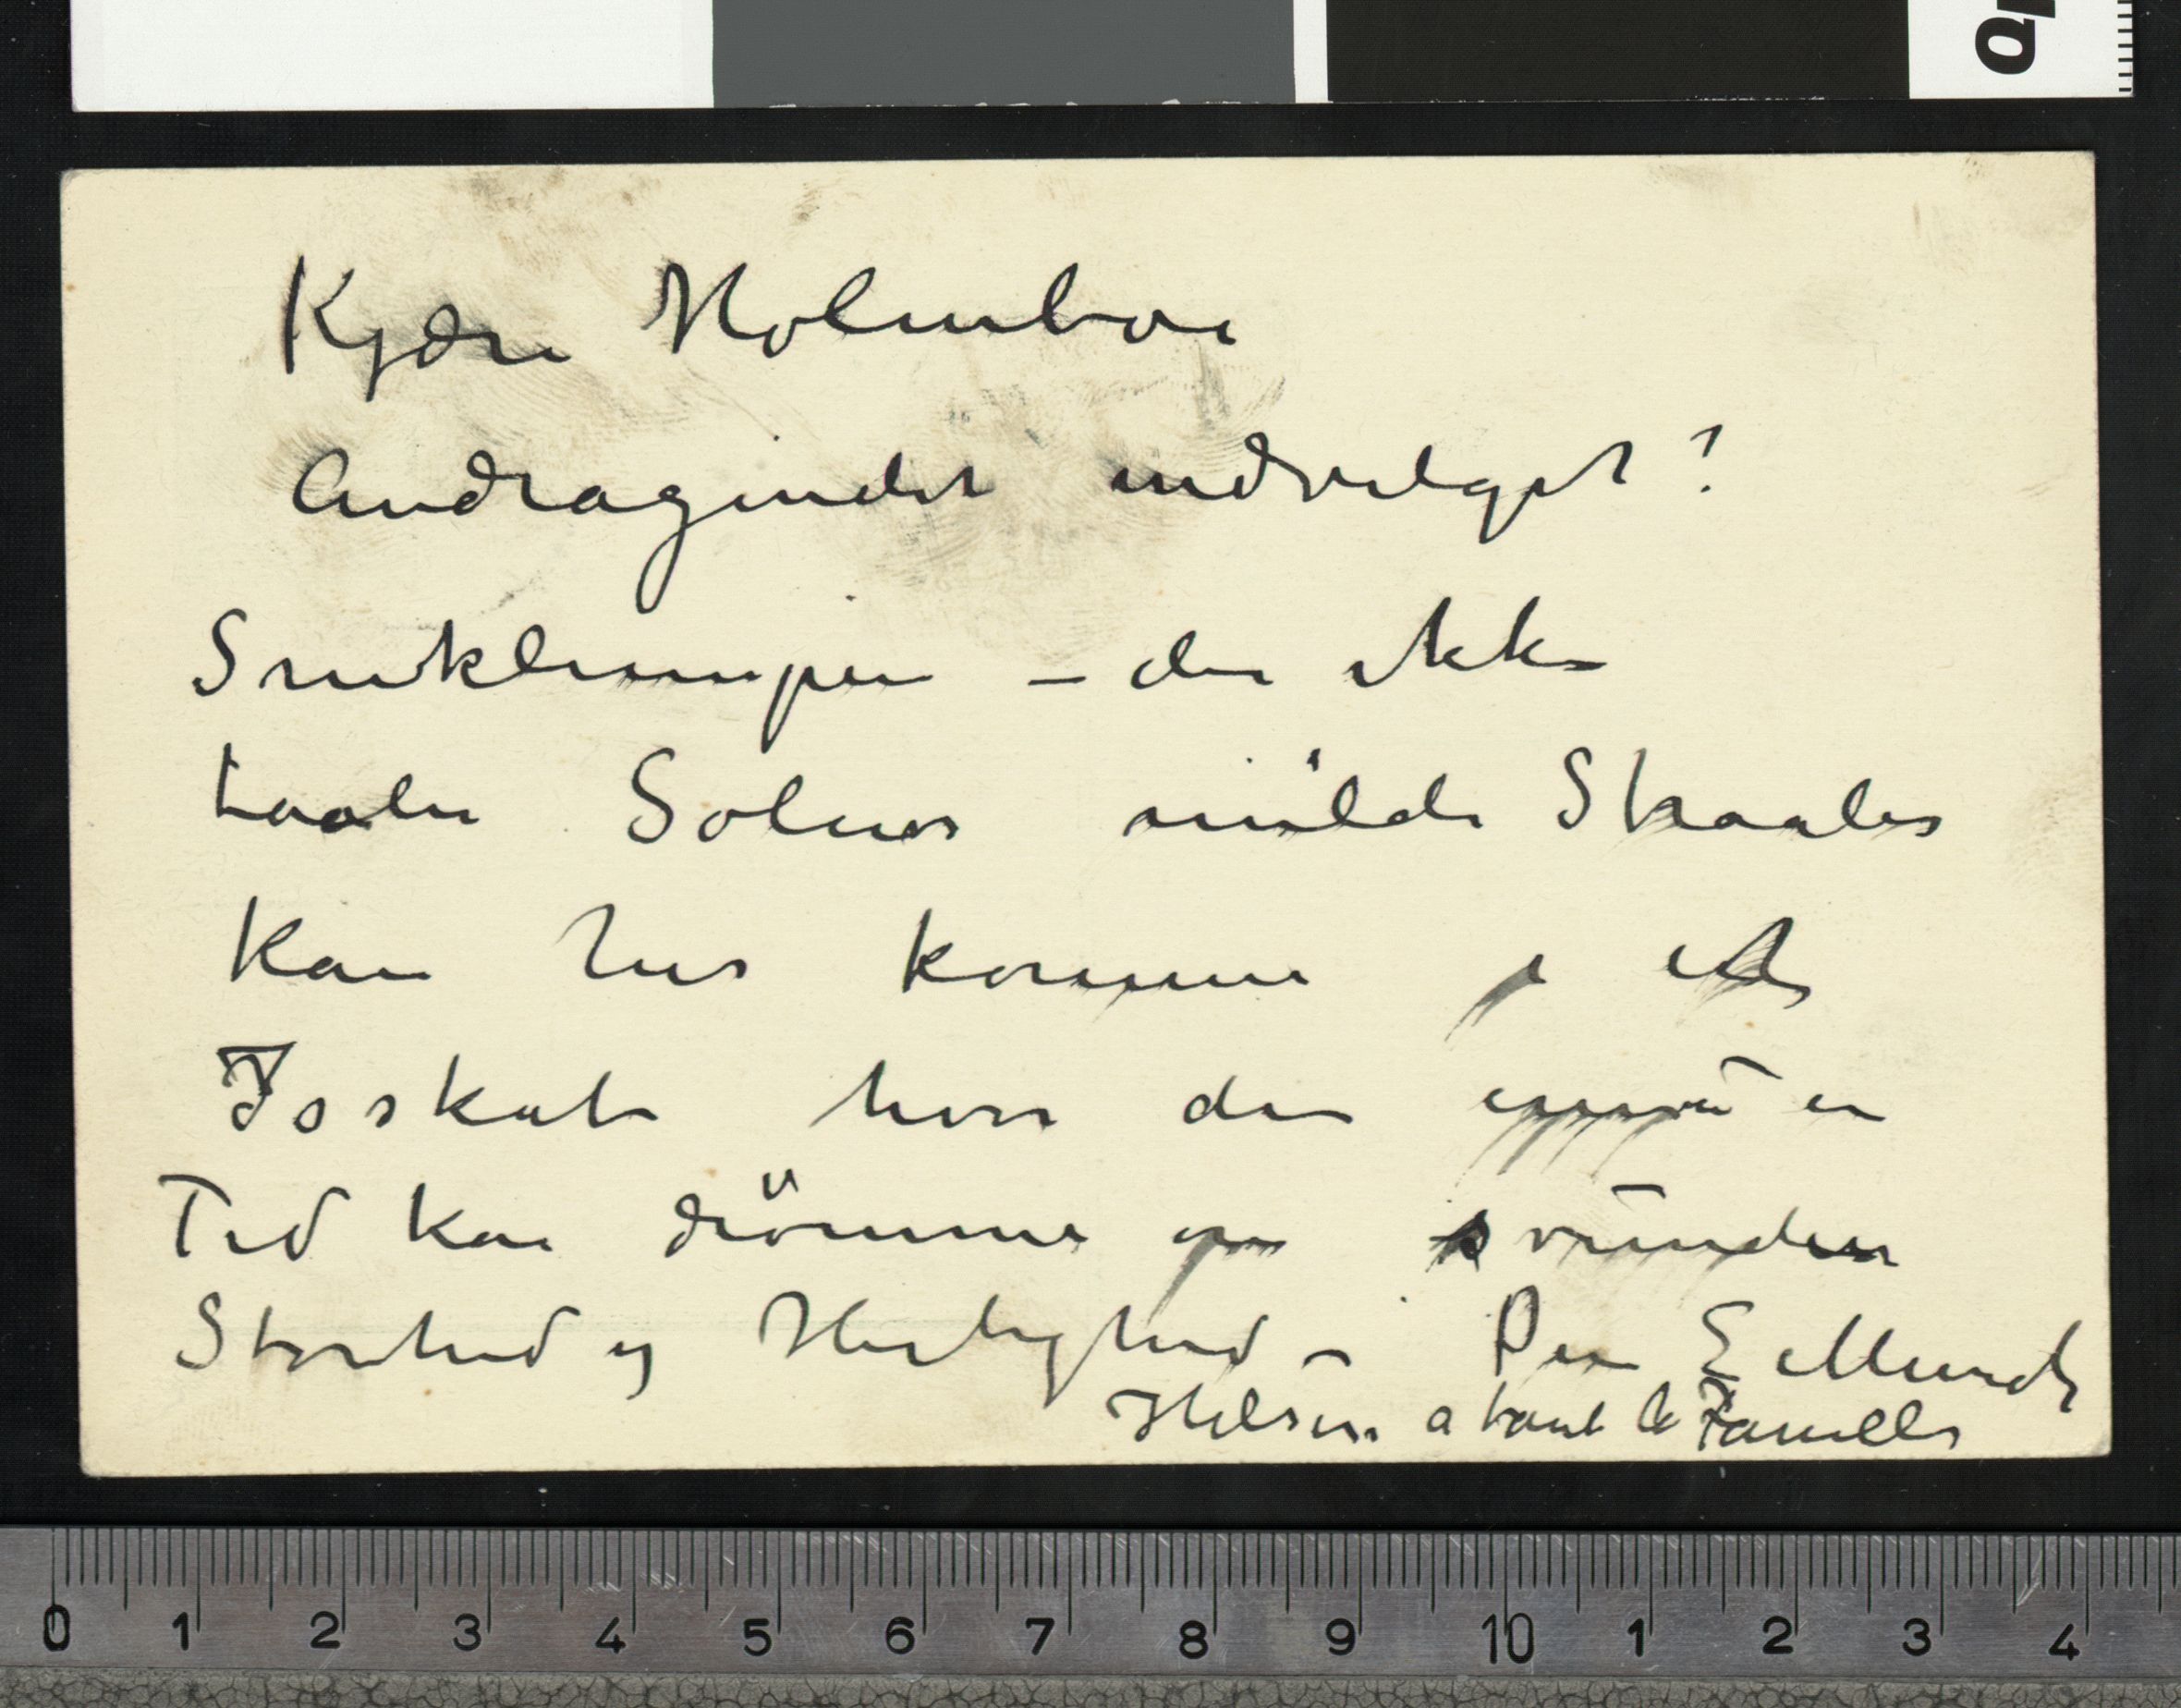 Kjære Holmboe
Andragendet indvilget!
Sneklumpen – der ikke
taaler Solens milde Straaler
kan her komme i et
Isskab hvor den en
Tid kan drömme om svunden
Storhed og Herlighed – Din E Munch
Hilsen a tout le Famille
0 1 2 3 4 5 6 7 8 9 10 1 2 3 4